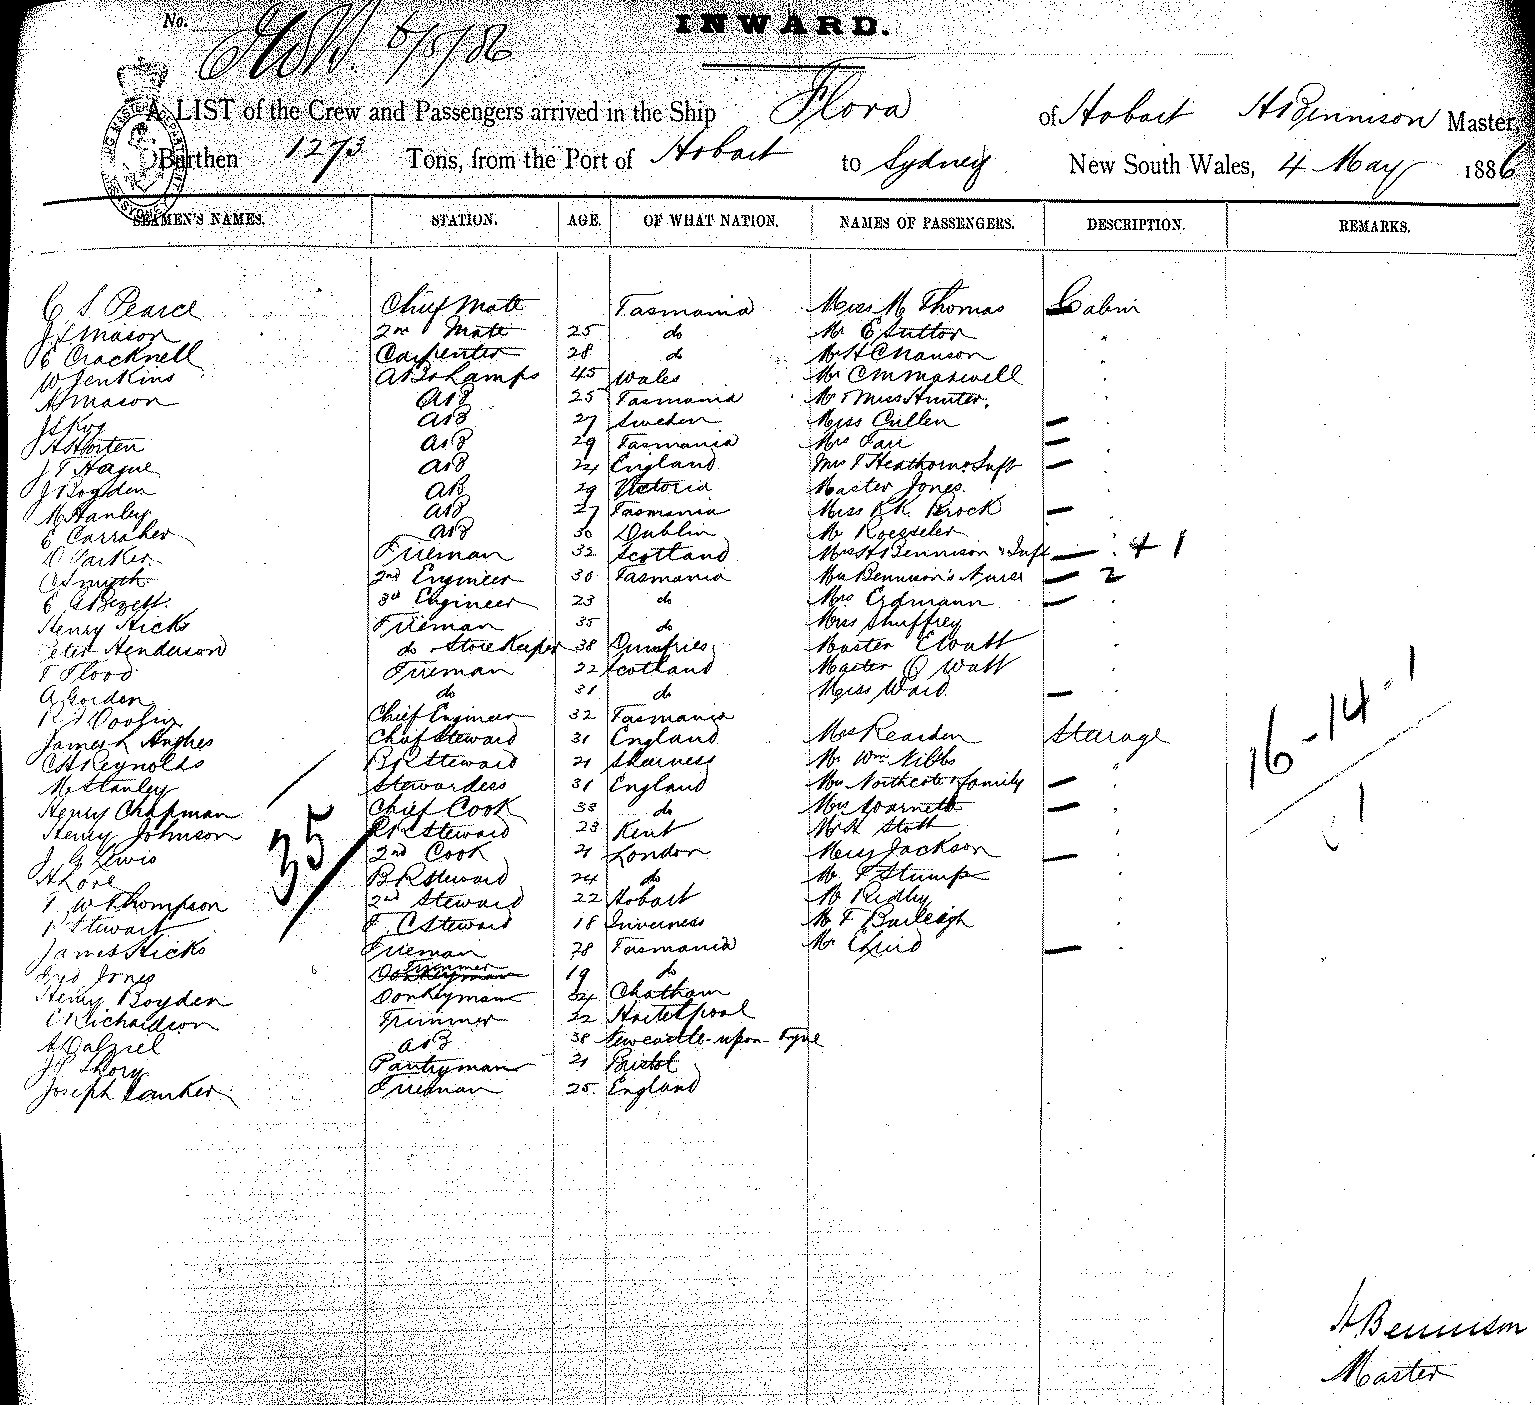 No.
INWARD.
6/5/86
A LIST of the Crew and Passengers arrived in the Ship Flora of Hobart H Bennison Master,
Burthen 1273 Tons, from the Port of Hobart to Sydney New South Wales, 4 May 1886
SEAMEN'S NAMES. STATION. AGE. OF WHAT NATION. NAMES OF PASSENGERS. DESCRIPTION. REMARKS.
C S Pearce Chief Mate Tasmania Miss M Thomas Cabin
Mason 2nd Mate 25 do Mr E Suttor
E Cracknell Carpenter 28 do Mr H C Manson
W Jenkins AB & Lamps 45 Wales Mr C M Maxwell
A Mason AB 25 Tasmania Mr & Miss Hunter.
AB 27 Sweden Miss Cullen
A Horten AB 29 Tasmania Mrs Farr
J T Hague AB 24 England Mrs T Heathorn & Inft
J Boyden AB 29 Victoria Master Jones.
M Hanley AB 27 Tasmania Miss Brock
E Carraher AB 30 Dublin Mr Roesseler
Parker Fireman 32 Scotland Mrs H Bennison & Inft + 1
Smyth 2nd Engineer 30 Tasmania Mrs Bennison's Nurse 2
E A Bezett. 3rd Engineer 23 do Mrs Erdmann
Henry Hicks Fireman 35 do Miss Shuffrey
Peter Henderson do Store Keeper 38 Dumfries Master E Watt
T Flood Fireman 22 Scotland Master G Watt
A Gordon do 31 do Miss Ward
Chief Engineer 32 Tasmania
James L Hughes Chief Steward 31 England Mrs Rearden Steerage
C H Reynolds BR Steward 21 Sheerness Mr Wm Nibbs
M Stanley Stewardess 31 England Mrs Northcote & family
Henry Chapman Chief Cook 33 do Mrs Garnett
Henry Johnson BR Steward 23 Kent Mr H Stott
J G Lewis 2nd Cook 21 London Miss Jackson
H Love BR Steward 24 do Mr T Stump
T W Thompson 2nd Steward 22 Hobart Mr Ridley
P Stewart F C Steward 18 Inverness Mr F Burleigh
James Hicks Fireman 28 Tasmania Mr
Fred Jones Trimmer 19 do
Henry Boyden Donkeyman 34 Chatham
C Richardson Trimmer 22 Hartlepool
A Dalziel AB 38 Newcastle-upon-Tyne
Pantryman 21 Bristol
Joseph Fireman 25 England
35
16-14-1
1
H Bennison
Master